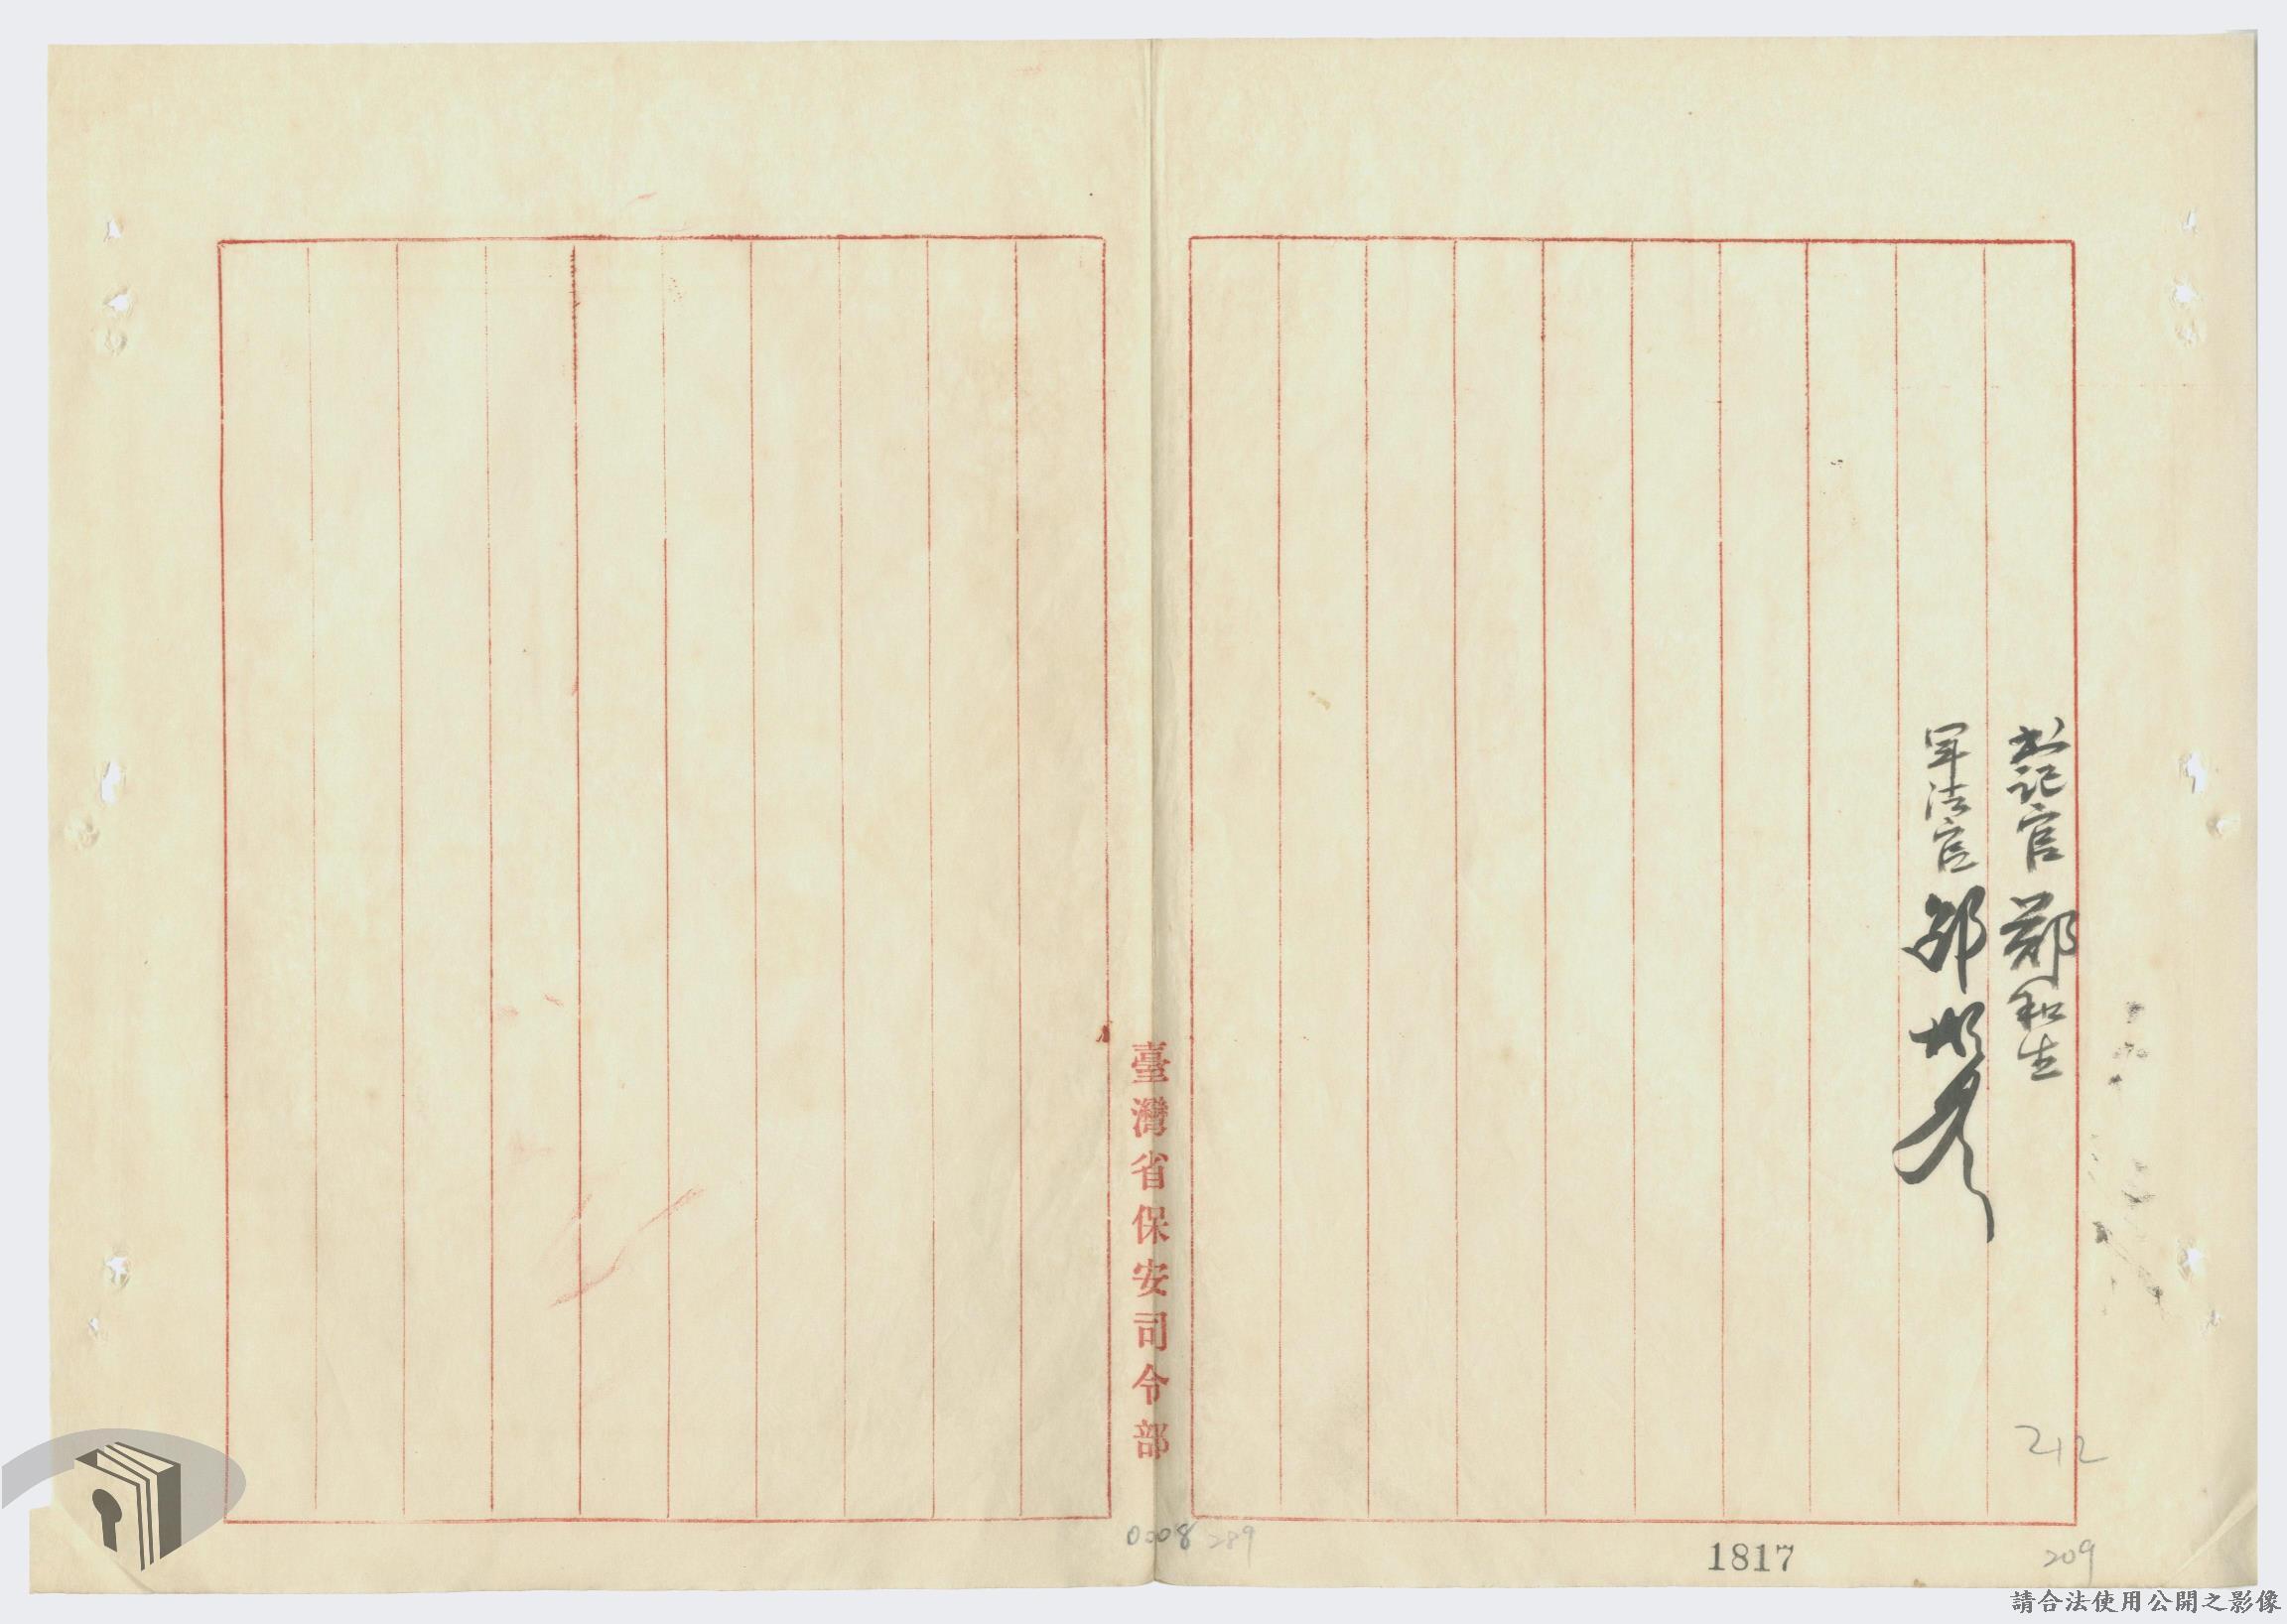 书记官 鄭和生
军法官 邵彬彦
臺灣省保安司令部
212
0008 289
1817
209
請合法使用公開之影像